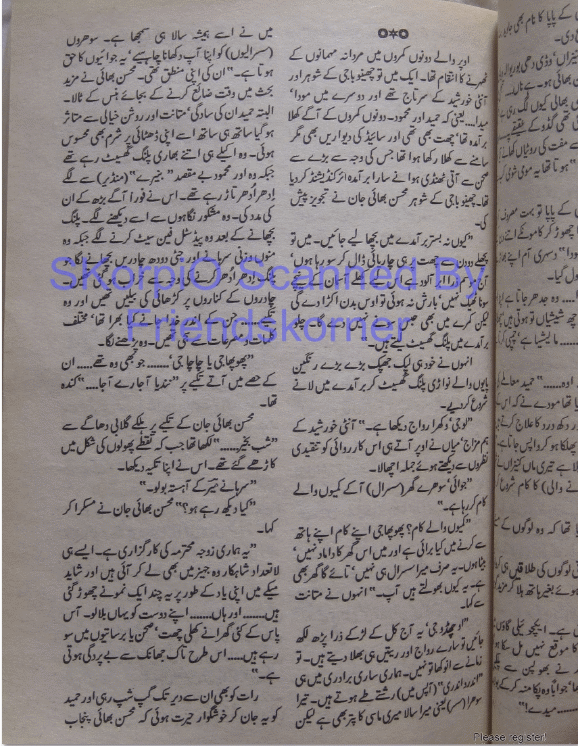 اوپر والے دونوں کمروں میں مردانہ مہمانوں کے
ٹھہرنے کا انتظام تھا۔ ایک میں تو چھینو باجی کے شوہر اور
آنٹی خورشید کے سرتاج تھے اور دوسرے میں مودا'
میدا..... یعنی کہ حمید اور محمود۔ دونوں کمروں کے آگے کھلا
برآمدہ تھا' چھت بھی تھی اور سائیڈ کی دیواریں بھی مگر
سامنے سے کھلا رکھا ہوا تھا جس کی وجہ سے بڑے سے
صحن سے آتی ٹھنڈی ہوا نے سارا برآمدہ ائرکنڈیشنڈ کر دیا
تھا۔ چھینو باجی کے شوہر محسن بھائی جان نے تجویز پیش
کی۔
"کیوں نہ بستر برآمدے میں بچھا لیے جائیں۔ میں تو
لیکن کمرے میں بھی حبس
برآمدے میں پلنگ گھسیٹ لیتے ہیں۔"
انہوں نے خود ہی لپک جھپک بڑے بڑے رنگین
پایوں والے نواڑی پلنگ گھسیٹ کر برآمدے میں لانے
شروع کر دیے۔
"لوجی' دکھرا رواج دیکھا ہے۔" آنٹی خورشید کے
ہم مزاج' میاں نے اوپر آتے ہی اس کارروائی کو تنقیدی
نظروں سے دیکھتے ہوئے جملہ اچھالا۔
"جوائی' سوہرے گھر (سسرال) آ کے کیوں والے
کام کر رہا ہے۔"
"کیوں والے کام؟ پھوپھا جی اپنے کام اپنے ہاتھ
سے کرنے میں کیا برائی ہے اور میں اس گھر کا داماد نہیں'
بیٹا ہوں۔ یہ صرف میرا سسرال ہی نہیں' تائے کا گھر بھی
ہے۔ یہ کیوں بھولتے ہیں آپ۔" انہوں نے متانت
سے کہا۔
"او چھڈو جی' یہ آج کل کے لڑکے ذرا پڑھ لکھ
جائیں تو سارے رواج اور ریتیں ہی بھلا دیتے ہیں۔ تو
زمانے سے انوکھا تو نہیں۔ ہماری ساری برادری میں ہی
"اندرو اندری" (آپس میں) رشتے طے ہوتے ہیں۔ تیرا
سوہرا (سسر) یعنی میرا سالا میری ماسی کا پتر بھی ہے لیکن
میں نے اسے ہمیشہ سالا ہی سمجھا ہے۔ سوہروں
(سسرالیوں) کو اپنا آپ دکھانا چاہیے' یہ جوائیوں کا حق
ہوتا ہے۔" ان کی اپنی منطق تھی۔ محسن بھائی نے مزید
بحث میں وقت ضائع کرنے کے بجائے ہنس کے ٹالا۔
البتہ حمید ان کی سادگی' متانت اور روشن خیالی سے متاثر
ہو گیا ساتھ ہی ساتھ اسے اپنی ڈھٹائی پر شرم بھی محسوس
ہوئی۔ وہ اکیلے ہی اتنے بھاری پلنگ گھسیٹ رہے تھے
جبکہ وہ اور محمود بے مقصد "بنیرے" (منڈیر) سے لگے
اِدھر اُدھر تاڑ رہے تھے۔ اس نے فوراً آگے بڑھ کے ان
کی مدد کی۔ وہ مشکور نگاہوں سے اسے دیکھنے لگے۔ پلنگ
بچھانے کے بعد وہ پیڈسٹل فین سیٹ کرنے لگے جبکہ وہ
منوں وزنی سرہانے اور چٹی دودھ چادریں بچھانے لگا جو
چادروں کے کناروں پر کڑھائی کی بیلیں تھیں اور وہ
تھیں۔ وہ پڑھنے لگا۔
"پھوپھا جی یا چاچا جی'........ جو بھی وہ تھے..... ان
کے حصے میں آتے تکیے پر "نندیا آ جا رے آ جا...." کندہ
تھا۔
محسن بھائی جان کے تکیے پر ہلکے گلابی دھاگے سے
"شب بخیر......" لکھا تھا جب کہ نقطے پھولوں کی شکل میں
کاڑھے گئے تھے۔ اس نے اپنا تکیہ دیکھا۔
"سرہانے میر کے آہستہ بولو۔"
"کیا دیکھ رہے ہو؟" محسن بھائی جان نے مسکرا کر
کہا۔
"یہ ہماری زوجہ محترمہ کی کارگزاری ہے۔ ایسے ہی
لاتعداد شاہکار وہ جہیز میں بھی لے کر آئی ہیں اور شاید
میکے میں اپنی یاد کے طور پر یہ چند ایک نمونے چھوڑ گئی
ہیں....... اور ہاں....... اپنے دوست کو یہاں بلا لو۔ آس
پاس کے کئی گھرانے کھلی چھت' صحن یا برساتیوں میں سو
رہے ہیں..... اس طرح تاک جھانک سے بے پردگی ہوتی
ہے۔"
رات کو بھی ان سے دیر تک گپ شپ رہی اور حمید
کو یہ جان کر خوشگوار حیرت ہوئی کہ محسن بھائی پنجاب
SKorpiO Scanned By
Friendskorner
Please register!